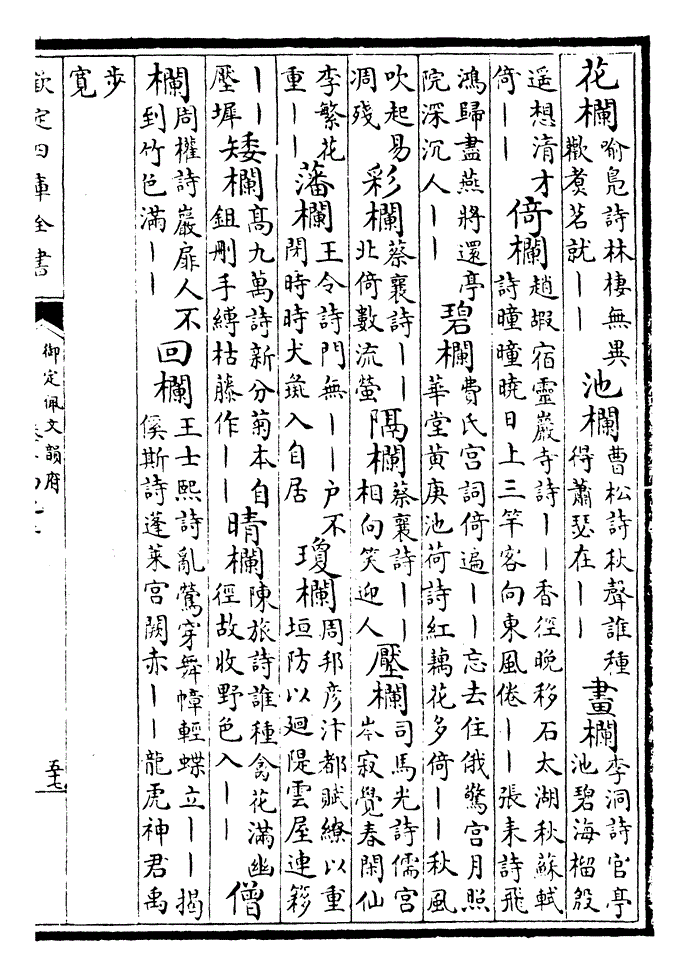 花欄喻鳧詩林棲無異歡煑茗就丨丨池欄曹松詩秋聲誰種得蕭瑟在丨丨畫欄李洞詩官亭池碧海榴殷
遥想清才倚丨丨倚欄趙嘏宿靈巖寺詩丨丨香徑晚移石太湖秋蘇軾詩曈曈曉日上三竿客向東風倦丨丨張耒詩飛
鴻歸盡燕將還亭院深沉人丨丨碧欄費氏宮詞倚遍丨丨忘去住俄驚宮月照華堂黄庚池荷詩紅藕花多倚丨丨秋風
吹起易凋殘彩欄蔡襄詩丨丨北倚數流螢隔欄蔡襄詩丨丨相向笑迎人壓欄司馬光詩儒宮岑寂覺春閑仙
李繁花重丨丨藩欄王令詩門無丨丨户不閉時時犬彘入自居瓊欄周邦彦汴都賦繚以重垣防以廻隄雲屋連簃
丨丨壓墀矮欄高九萬詩新分菊本自鉏刪手縛枯藤作丨丨晴欄陳旅詩誰種禽花滿幽徑故收野色入丨丨僧
欄周權詩巖扉人不到竹色滿丨丨回欄王士熙詩亂鶯穿舞幛輕蝶立丨丨揭傒斯詩蓬萊宮闕赤丨丨龍虎神君禹
步寛
欽定四庫全書
御定佩文韻府
五十七